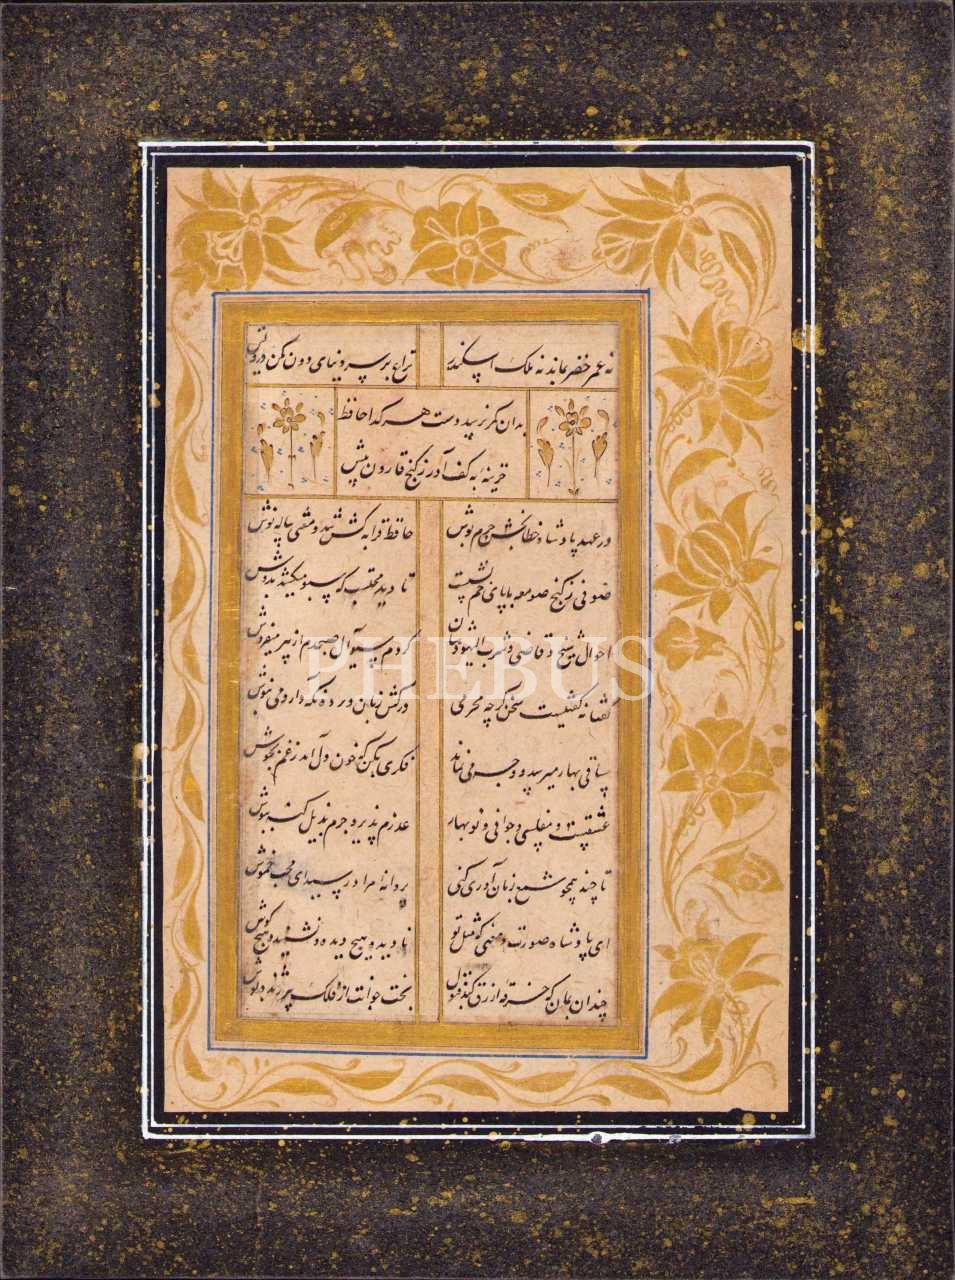 نه عمر خضر بماند نه ملک اسکندر نزاع بر سر دنیای دون مکن درویش
بدان کمر نرسد دست هر گدا حافظ
خزینه به کف آور ز گنج قارون بیش
در عهد پادشاه خطابخش جرم پوش حافظ قرابه کش شد و مفتی پیاله نوش
صوفی ز کنج صومعه با پای خم نشست تا دید محتسب که سبو میکشد بدوش
احوال شیخ و قاضی و شرب الیهودشان کردم سوال صبحدم از پیر میفروش
گفتا نه گفتنیست سخن گرچه محرمی درکش زبان و پرده نگه دار و می بنوش
ساقی بهار میرسد و وجه می نماند فکری بکن که خون دل آمد ز غم بجوش
عشقست و مفلسی و جوانی و نوبهار عذرم پذیر و جرم بذیل بپوش
تا چند همچو شمع زبان آوری کنی پروانه مراد رسید ای محب خموش
ای پادشاه صورت و معنی که مثل تو نادیده هیچ دیده و نشنیده هیچ گوش
چندان بمان که خرقه ازرق کند قبول بخت جوانت از فلک پیر ژنده پوش
PHEBUS